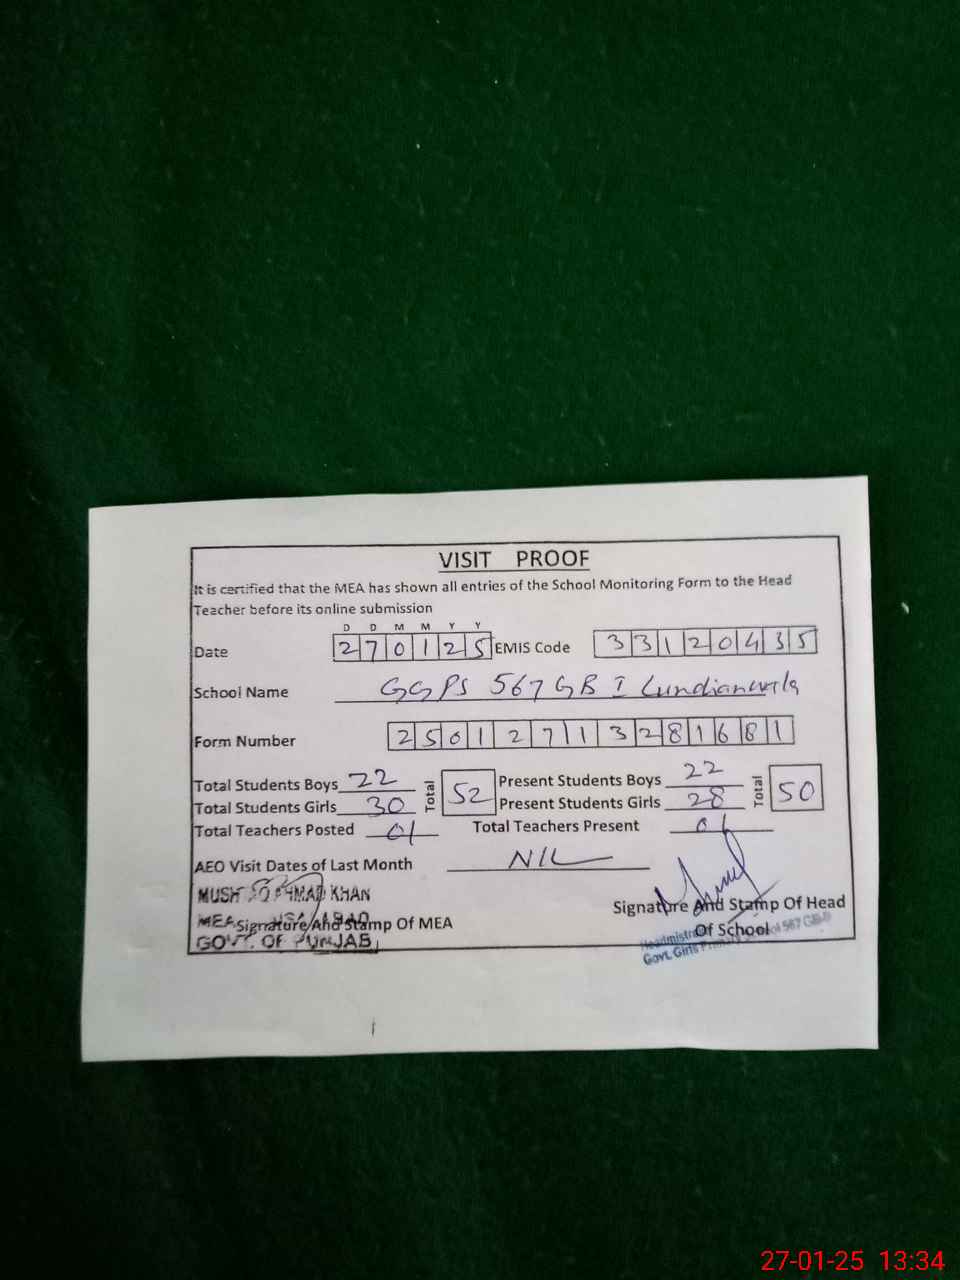 VISIT PROOF
It is certified that the MEA has shown all entries of the School Monitoring Form to the Head
Teacher before its online submission
D D M M Y Y
Date 270125 EMIS Code 33120435
School Name GGPS 567 GB I Lundianwala
Form Number 250127113281681
Total Students Boys 22 Total 52 Present Students Boys 22 Total 50
Total Students Girls 30 Present Students Girls 28
Total Teachers Posted 01 Total Teachers Present 01
AEO Visit Dates of Last Month NIL
KHAN
MEA
Signature And Stamp Of MEA
GOVT. OF PUNJAB
Signature And Stamp Of Head
Of School
Govt. Girls 567 GB
27-01-25 13:34